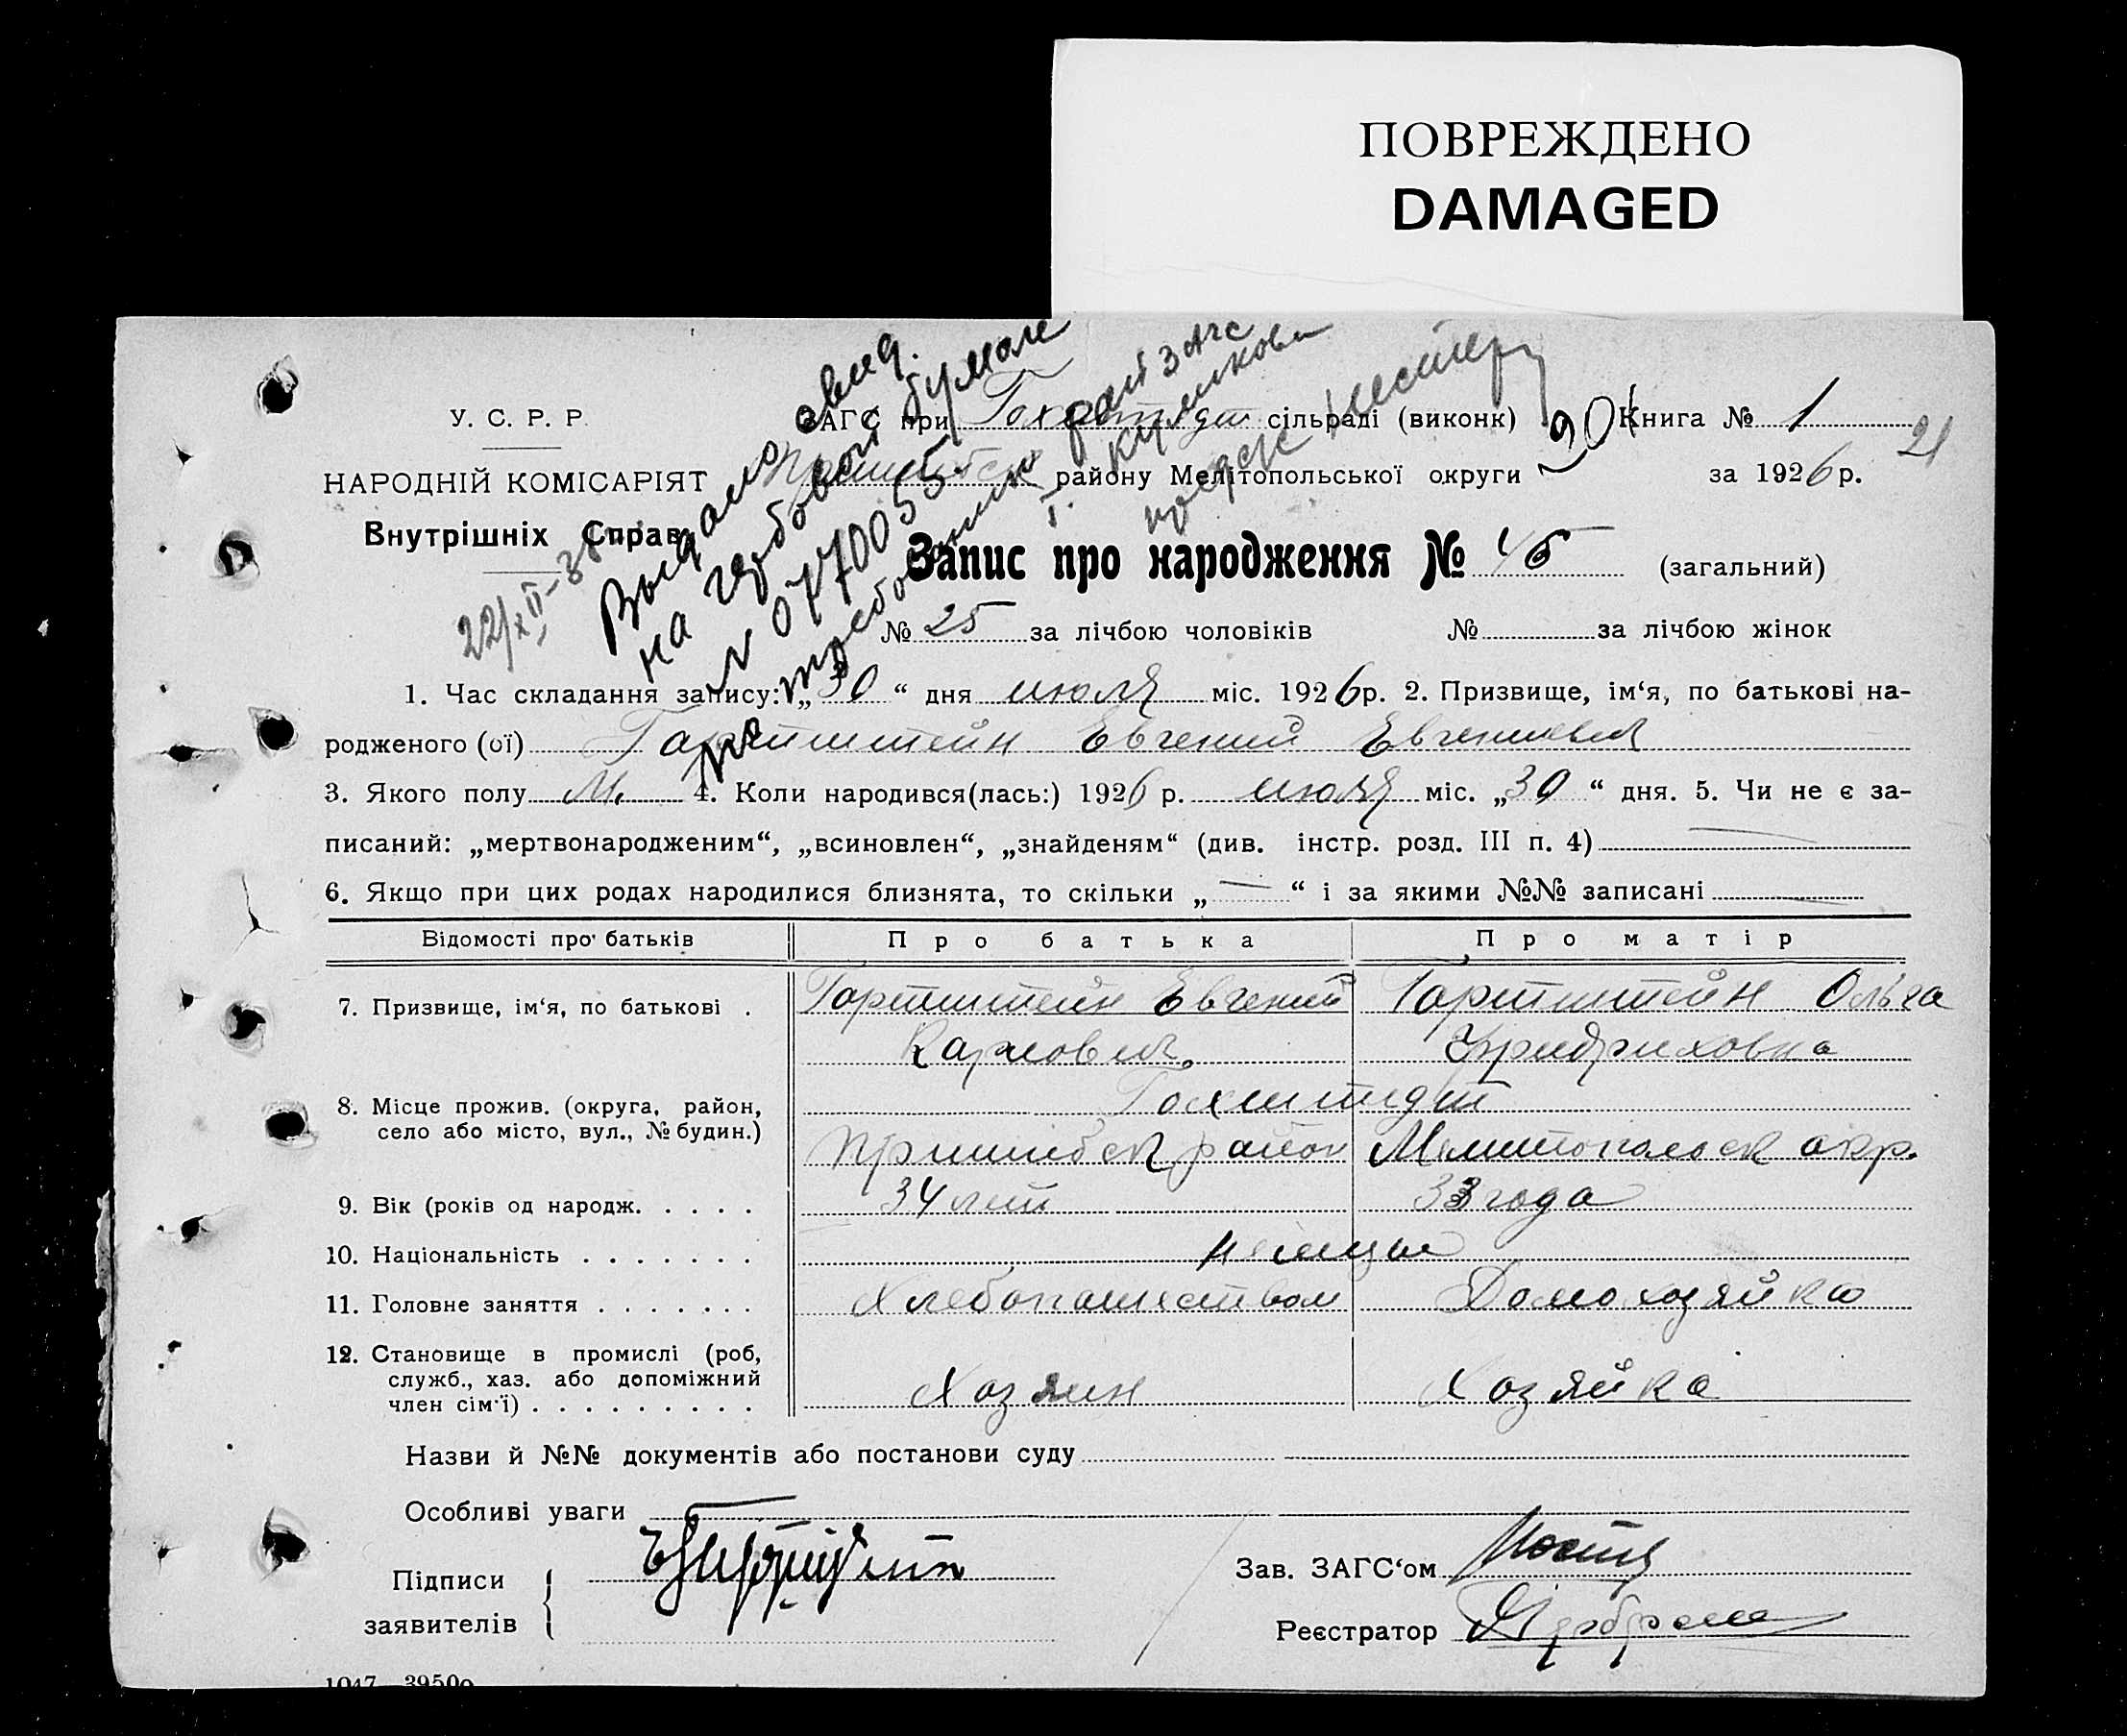 ПОВРЕЖДЕНО
DAMAGED
У. С. Р. Р.
НАРОДНІЙ КОМІСАРІЯТ
Внутрішніх Справ
22/XII-38
Выдано свид.
на гербовой бумаге
N 0770055
ЗАГС при Гохштедт сільраді (виконк) Книга № 1
21
Пришибск району Мелітопольської округи за 1926 р.
Запис про народження № 45 (загальний)
№ 25 за лічбою чоловіків № за лічбою жінок
1. Час складання запису: „30“ дня июля міс. 1926 р. 2. Призвище, ім‘я, по батькові на-
родженого (ої) Гартштейн Евгений Евгениевич
3. Якого полу М. 4. Коли народився(лась:) 1926 р. июля міс. „30“ дня. 5. Чи не є за-
писаний: „мертвонародженим“, „всиновлен“, „знайденям“ (див. інстр. розд. III п. 4) —
6. Якщо при цих родах народилися близнята, то скільки „—“ і за якими №№ записані
Відомості про батьків Про батька Про матір
7. Призвище, ім‘я, по батькові . Гартштейн Евгений Гартштейн Ольга
Карлович Фридриховна
8. Місце прожив. (округа, район, Гохштедт
село або місто, вул., № будин.) Пришибск район Мелитопольск окр.
9. Вік (років од народж. . . . . 34 лет 33 года
10. Національність . . . . . . . немцы
11. Головне заняття . . . . . . . Хлебопашеством Домохозяйка
12. Становище в промислі (роб,
служб., хаз. або допоміжний Хозяин Хозяйка
член сім‘ї) . . . . . . . . .
Назви й №№ документів або постанови суду
Особливі уваги
Підписи
заявителів
Зав. ЗАГС‘ом
Реєстратор
1047 39500